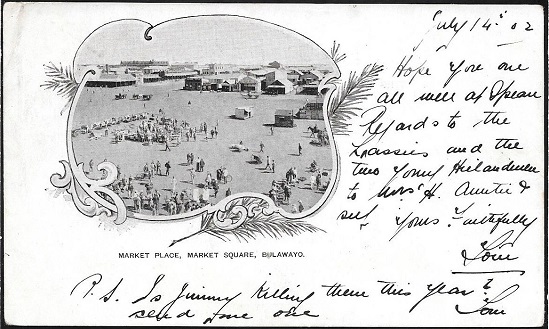 July 14th 02
Hope you are
all well at Spean
Regards to the
Lassies and the
two young Hielandmen
to Mrs H. Auntie &
self yours faithfully
Tom
MARKET PLACE, MARKET SQUARE, BULAWAYO.
P.S. Is Jimmy Killing them this year?
send me one Tom